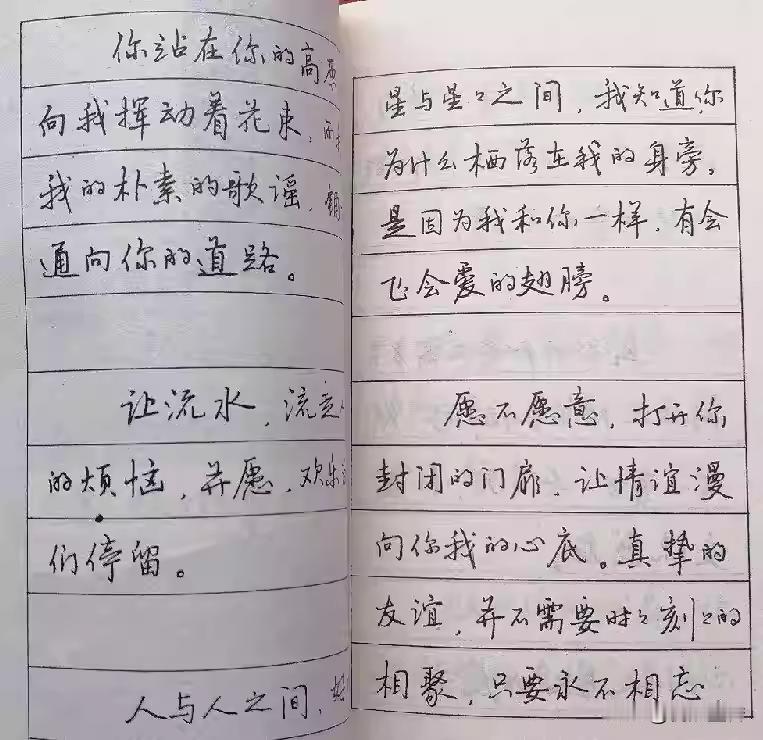 你站在你的高原
向我挥动着花束,而我
我的朴素的歌谣,铺
通向你的道路。
让流水,流走
的烦恼,并愿,欢乐
们停留。
人与人之间,
星与星々之间,我知道你
为什么栖落在我的身旁。
是因为我和你一样,有会
飞会爱的翅膀。
愿不愿意,打开你
封闭的门扉,让情谊漫
向你我的心底。真挚的
友谊,并不需要时々刻々的
相聚,只要永不相忘